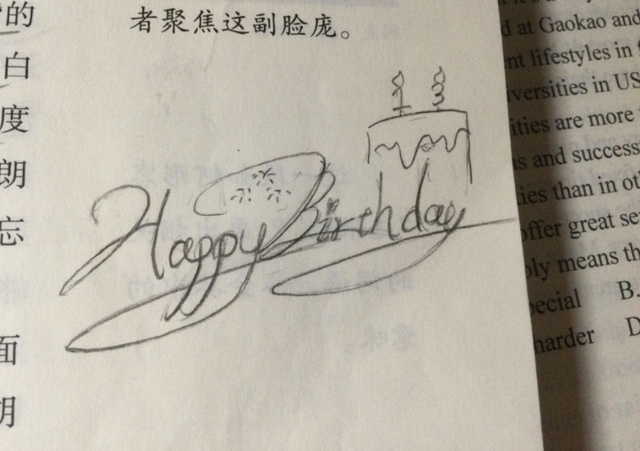 的
白
度
朗
忘
面
朋
者聚焦这副脸庞。
Happy Birthday
d at Gaokao and
nt lifestyles in
versities in US
ities are more
s and success
ties than in ot
offer great se
ply means th
pecial B.
harder D